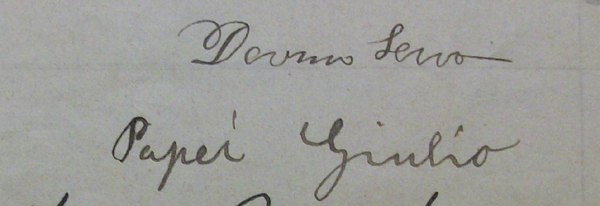 Devmo Servo
Papei Giulio